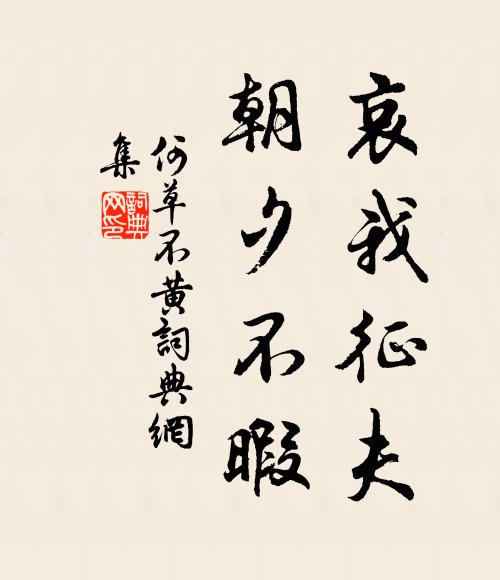 哀我征夫
朝夕不暇
何草不黃詞典網
集
詞典
网印